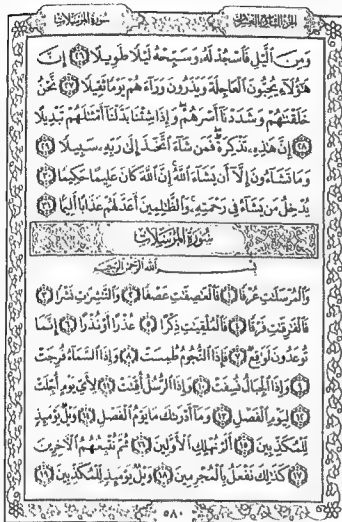 الجزء التاسع والعشرون
سورة المرسلات
وَمِنَ ٱلَّيْلِ فَٱسْجُدْ لَهُۥ وَسَبِّحْهُ لَيْلًا طَوِيلًا ٢٦ إِنَّ
هَٰٓؤُلَآءِ يُحِبُّونَ ٱلْعَاجِلَةَ وَيَذَرُونَ وَرَآءَهُمْ يَوْمًا ثَقِيلًا ٢٧ نَّحْنُ
خَلَقْنَٰهُمْ وَشَدَدْنَآ أَسْرَهُمْ وَإِذَا شِئْنَا بَدَّلْنَآ أَمْثَٰلَهُمْ تَبْدِيلًا
٢٨ إِنَّ هَٰذِهِۦ تَذْكِرَةٌ فَمَن شَآءَ ٱتَّخَذَ إِلَىٰ رَبِّهِۦ سَبِيلًا ٢٩
وَمَا تَشَآءُونَ إِلَّآ أَن يَشَآءَ ٱللَّهُ إِنَّ ٱللَّهَ كَانَ عَلِيمًا حَكِيمًا ٣٠
يُدْخِلُ مَن يَشَآءُ فِى رَحْمَتِهِۦ وَٱلظَّٰلِمِينَ أَعَدَّ لَهُمْ عَذَابًا أَلِيمًۢا ٣١
سُورَةُ المُرْسَلَات
بِسْمِ ٱللَّهِ ٱلرَّحْمَٰنِ ٱلرَّحِيمِ
وَٱلْمُرْسَلَٰتِ عُرْفًا ١ فَٱلْعَٰصِفَٰتِ عَصْفًا ٢ وَٱلنَّٰشِرَٰتِ نَشْرًا ٣
فَٱلْفَٰرِقَٰتِ فَرْقًا ٤ فَٱلْمُلْقِيَٰتِ ذِكْرًا ٥ عُذْرًا أَوْ نُذْرًا ٦ إِنَّمَا
تُوعَدُونَ لَوَٰقِعٌ ٧ فَإِذَا ٱلنُّجُومُ طُمِسَتْ ٨ وَإِذَا ٱلسَّمَآءُ فُرِجَتْ
٩ وَإِذَا ٱلْجِبَالُ نُسِفَتْ ١٠ وَإِذَا ٱلرُّسُلُ أُقِّتَتْ ١١ لِأَىِّ يَوْمٍ أُجِّلَتْ
١٢ لِيَوْمِ ٱلْفَصْلِ ١٣ وَمَآ أَدْرَىٰكَ مَا يَوْمُ ٱلْفَصْلِ ١٤ وَيْلٌ يَوْمَئِذٍ
لِّلْمُكَذِّبِينَ ١٥ أَلَمْ نُهْلِكِ ٱلْأَوَّلِينَ ١٦ ثُمَّ نُتْبِعُهُمُ ٱلْءَاخِرِينَ
١٧ كَذَٰلِكَ نَفْعَلُ بِٱلْمُجْرِمِينَ ١٨ وَيْلٌ يَوْمَئِذٍ لِّلْمُكَذِّبِينَ ١٩
٥٨٠